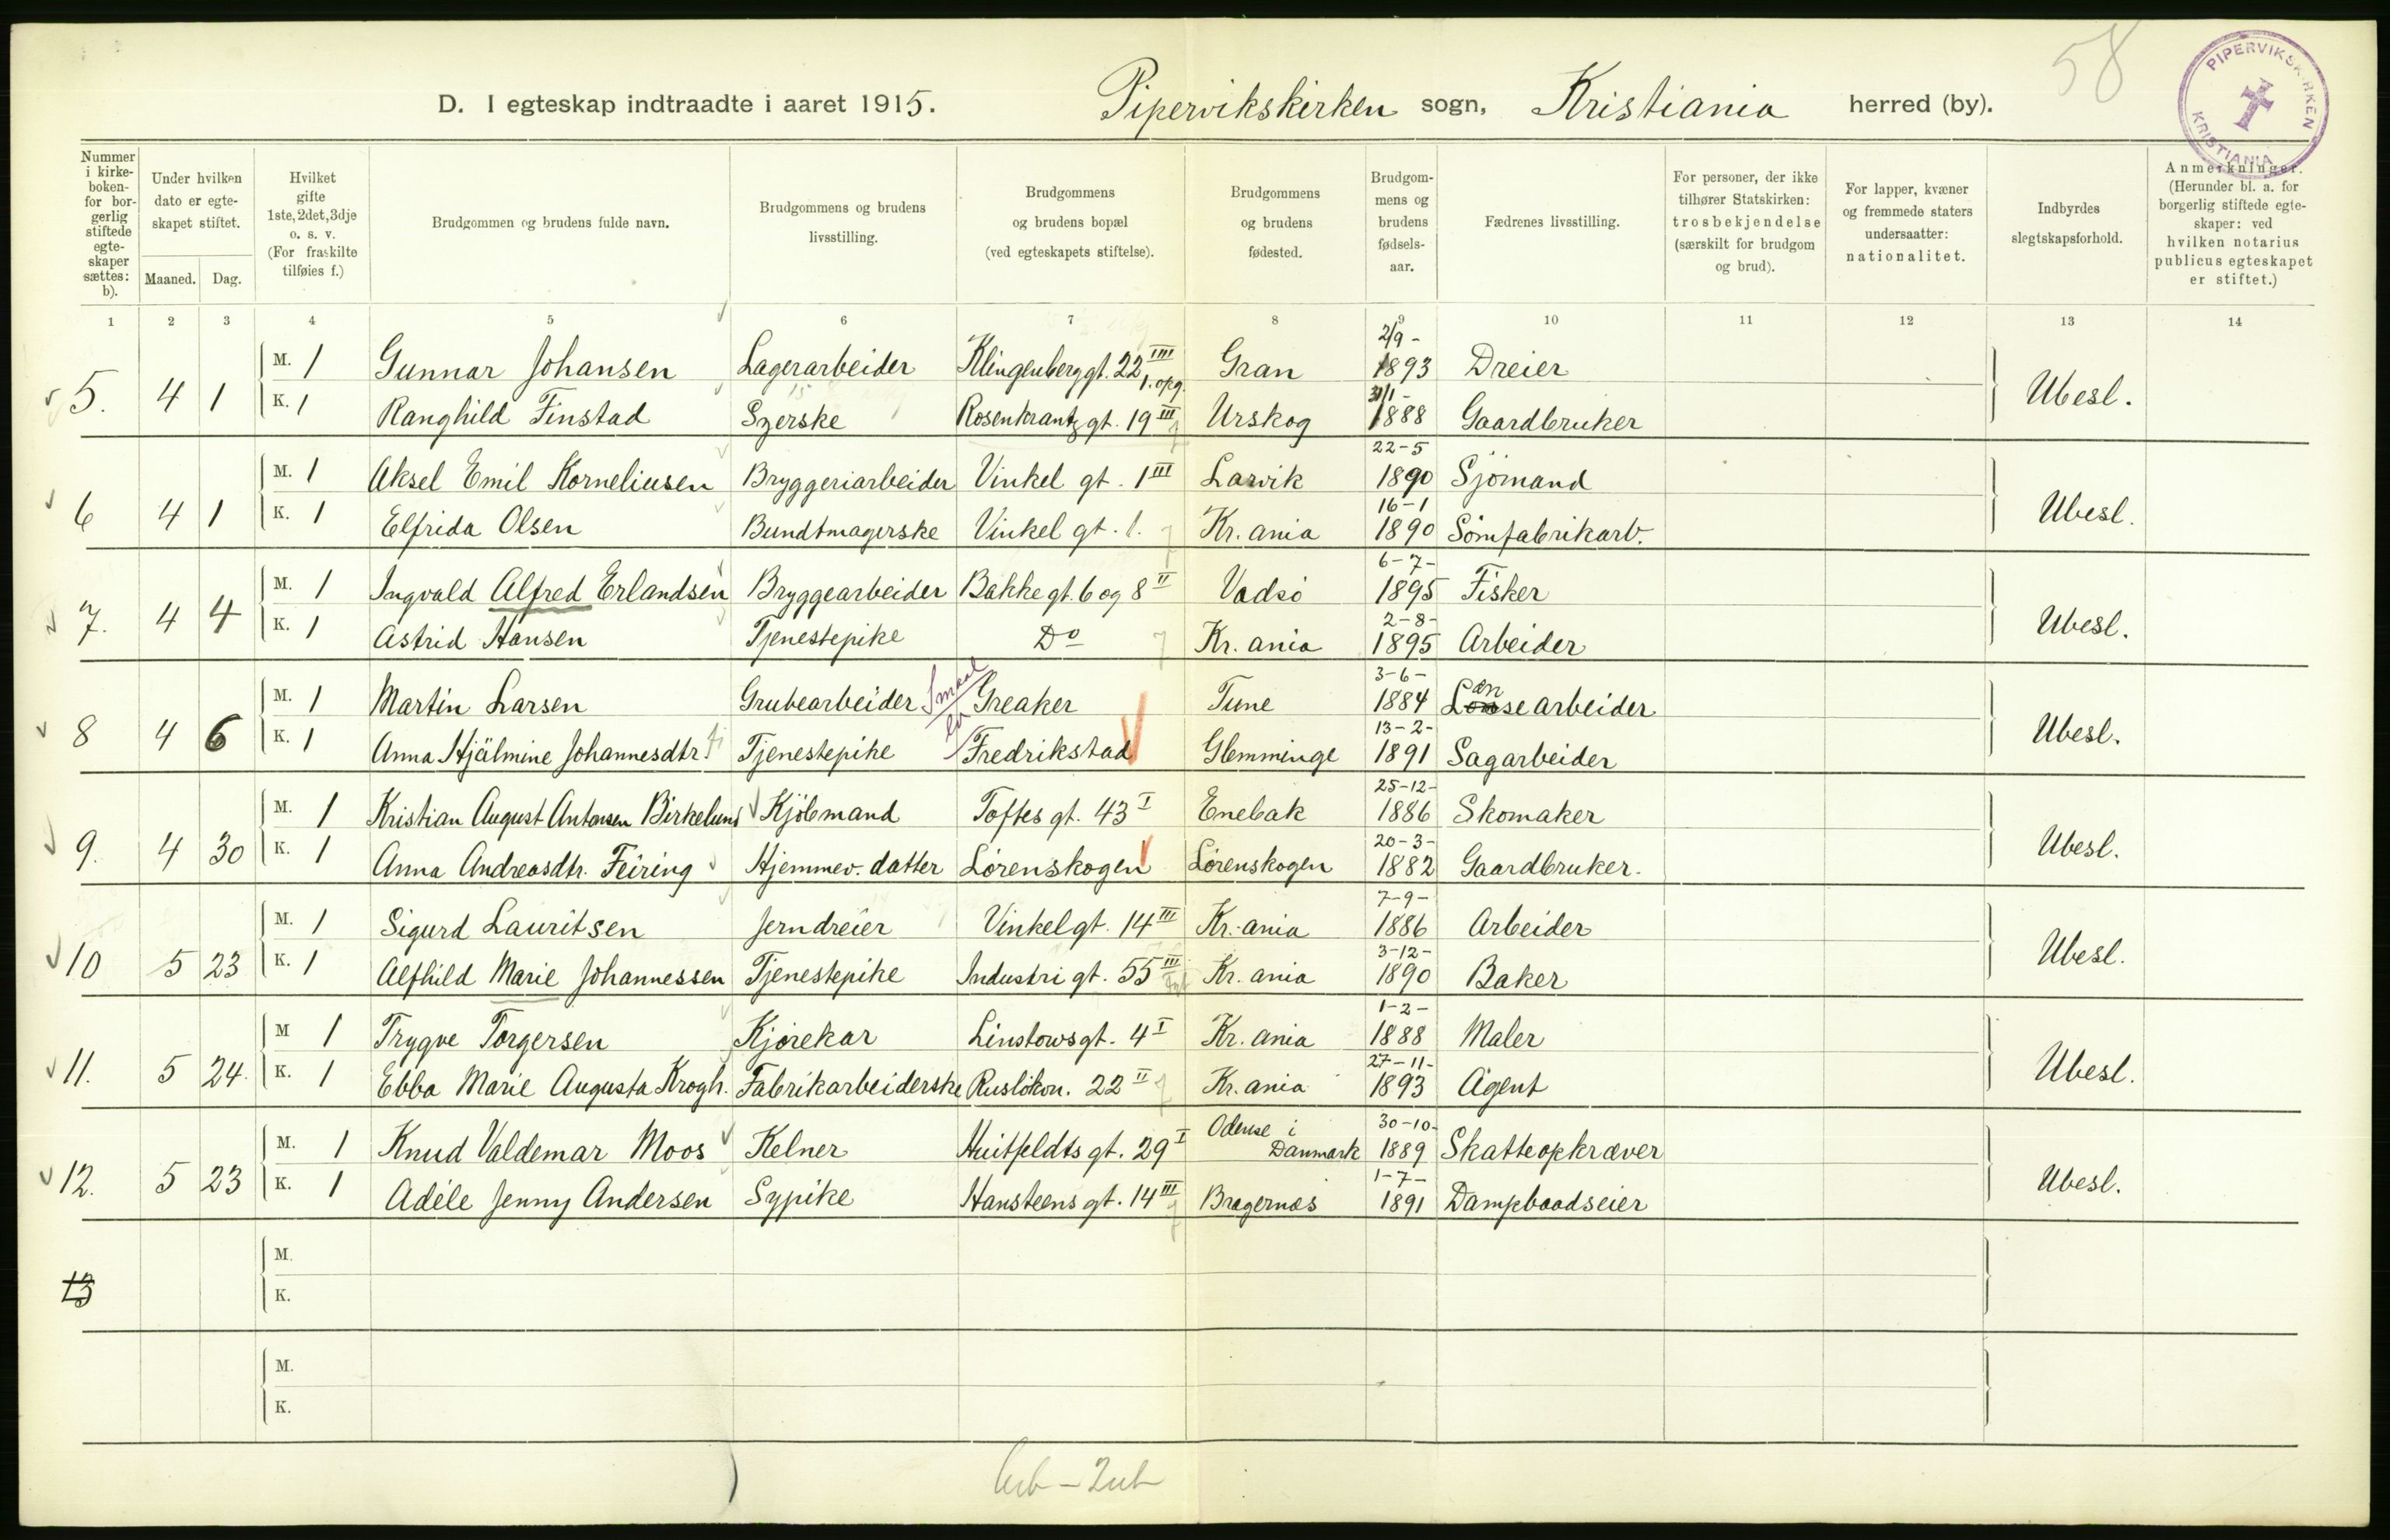 58
PIPERVIKSKIRKEN KRISTIANIA
D. I egteskap indtraadte i aaret 1915. Pipervikskirken sogn, Kristiania herred (by).
Nummer i kirke-boken- for bor-gerlig stiftede egte-skaper sættes: b).
Under hvilken dato er egte-skapet stiftet.
Maaned. Dag.
Hvilket gifte 1ste, 2det, 3dje o. s. v. (For fraskilte tilføies f.)
Brudgommen og brudens fulde navn.
Brudgommens og brudens livsstilling.
Brudgommens og brudens bopæl (ved egteskapets stiftelse).
Brudgommens og brudens fødested.
Brudgom-mens og brudens fødsels-aar.
Fædrenes livsstilling.
For personer, der ikke tilhører Statskirken: trosbekjendelse (særskilt for brudgom og brud).
For lapper, kvæner og fremmede staters undersaatter: nationalitet.
Indbyrdes slegtskapsforhold.
Anmerkninger. (Herunder bl. a. for borgerlig stiftede egte-skaper: ved hvilken notarius publicus egteskapet er stiftet.)
1 2 3 4 5 6 7 8 9 10 11 12 13 14
5. 4 1 M. 1 Gunnar Johansen Lagerarbeider Klingenberggt. 22 III 1. opg. Gran 2/9 - 1893 Dreier Ubesl.
K. 1 Ranghild Finstad Syerske Rosenkrantzgt. 19 III Urskog 31/1 - 1888 Gaardbruker
6 4 1 M. 1 Aksel Emil Korneliusen Bryggeriarbeider Vinkel gt. 1 III Larvik 22-5 1890 Sjömand Ubesl.
K. 1 Elfrida Olsen Bundtmagerske Vinkel gt. 1. Kr.ania 16-1 1890 Sömfabrikarb.
7. 4 4 M. 1 Ingvald Alfred Erlandsen Bryggearbeider Bakkegt. 6 og 8 II Vadsö 6-7- 1895 Fisker Ubesl.
K. 1 Astrid Hansen Tjenestepike Do Kr.ania 2-8- 1895 Arbeider
8 4 6 M. 1 Martin Larsen Grubearbeider Smaal Greaker Tune 3-6- 1884 Lænsearbeider Ubesl.
K. 1 Anna Hjälmine Johannesdtr. Tjenestepike Fredrikstad Glemminge 13-2- 1891 Sagarbeider
9. 4 30 M. 1 Kristian August Antonsen Birkelund Kjöbmand Toftes gt. 43 I Enebak 25-12- 1886 Skomaker Ubesl.
K. 1 Anna Andreasdtr. Feiring Hjemmev. datter Lörenskogen Lörenskogen 20-3- 1882 Gaardbruker.
10 5 23 M. 1 Sigurd Lauritsen Jerndreier Vinkelgt. 14 III Kr.ania 7-9- 1886 Arbeider Ubesl.
K. 1 Alfhild Marie Johannessen Tjenestepike Industri gt. 55 III Kr.ania 3-12- 1890 Baker
11. 5 24. M 1 Trygve Torgersen Kjörekar Linstowsgt. 4 I Kr.ania 1-2- 1888 Maler Ubesl.
K. 1 Ebba Marie Augusta Krogh. Fabrikarbeiderske Ruslökv. 22 II Kr.ania 27-11- 1893 Agent
12. 5 23 M. 1 Knud Valdemar Moos Kelner Huitfeldts gt. 29 I Odense i Danmark 30-10- 1889 Skatteopkræver Ubesl.
K. 1 Adéle Jenny Andersen Sypike Hansteens gt. 14 III Bragernes 1-7- 1891 Dampbaadseier
13 M.
K.
M.
K.